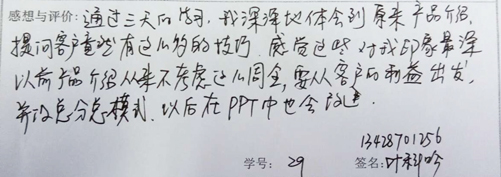 感想与评价：通过三天的学习，我深深地体会到原来产品介绍，
提问客户竟然有这么多的技巧，感觉这些对我印象最深
以前产品介绍从来不考虑这么周全，要从客户的利益出发，
并没总分总模式．以后在PPT中也会改进．
13428701256
学号： 29 签名：叶